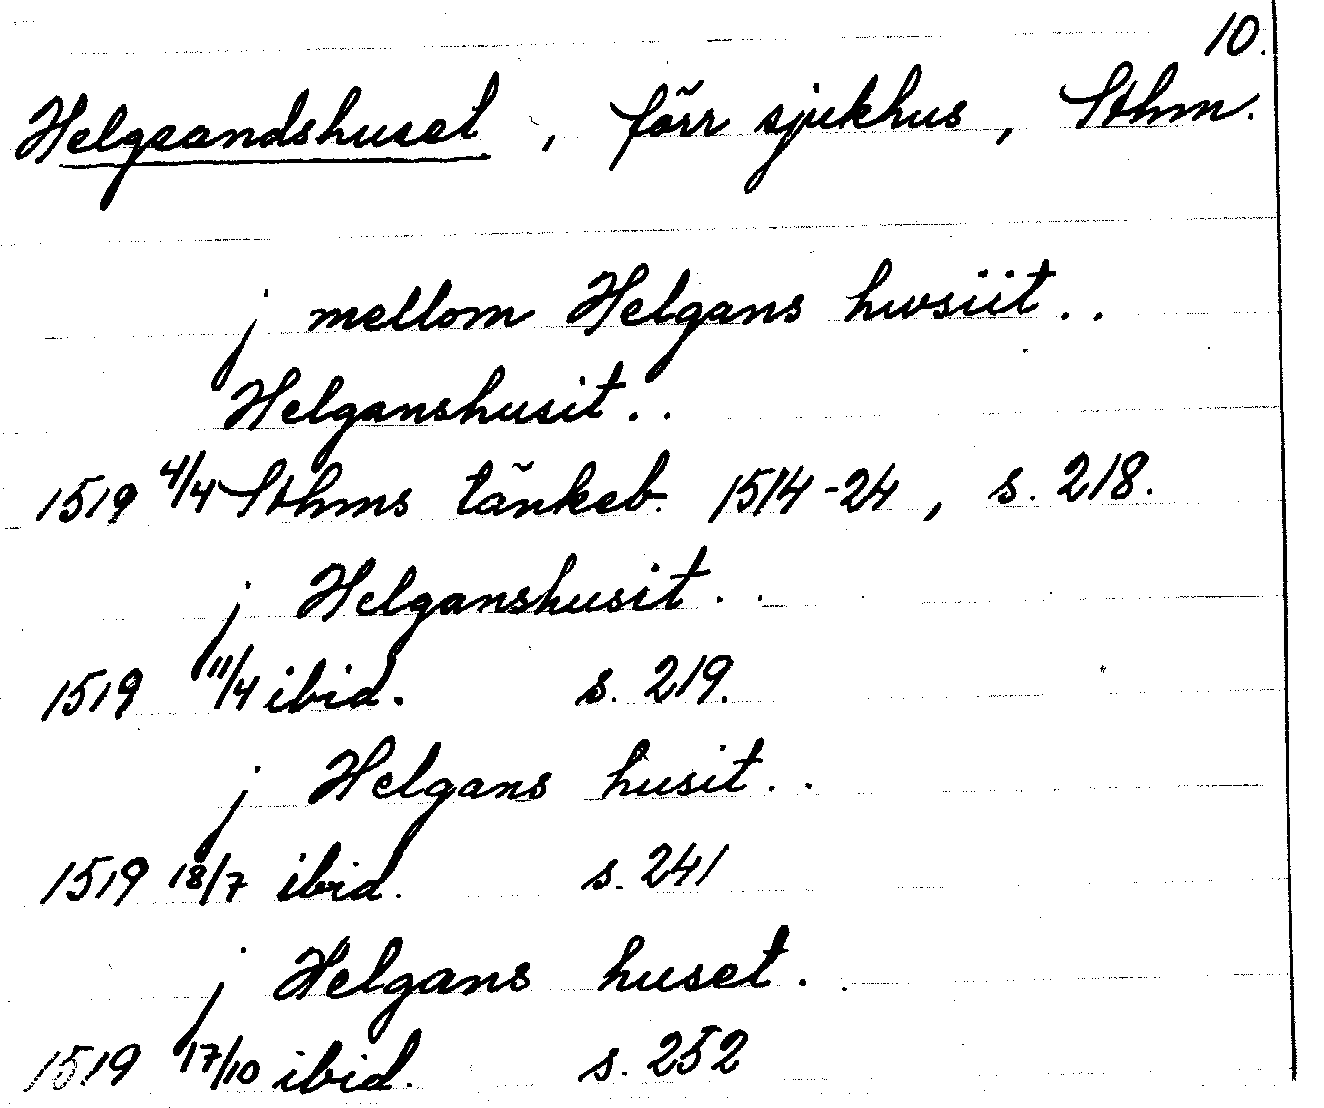 10.
Helgeandshuset, förr sjukhus, Sthm.
j mellom Helgans hwsiit..
Helganshusit..
1519 4/4 Sthms tänkeb. 1514-24, s. 218.
j Helganshusit..
1519 11/4 ibid. s. 219.
j Helgans husit..
1519 18/7 ibid. s. 241
j Helgans huset..
1519 17/10 ibid. s. 252